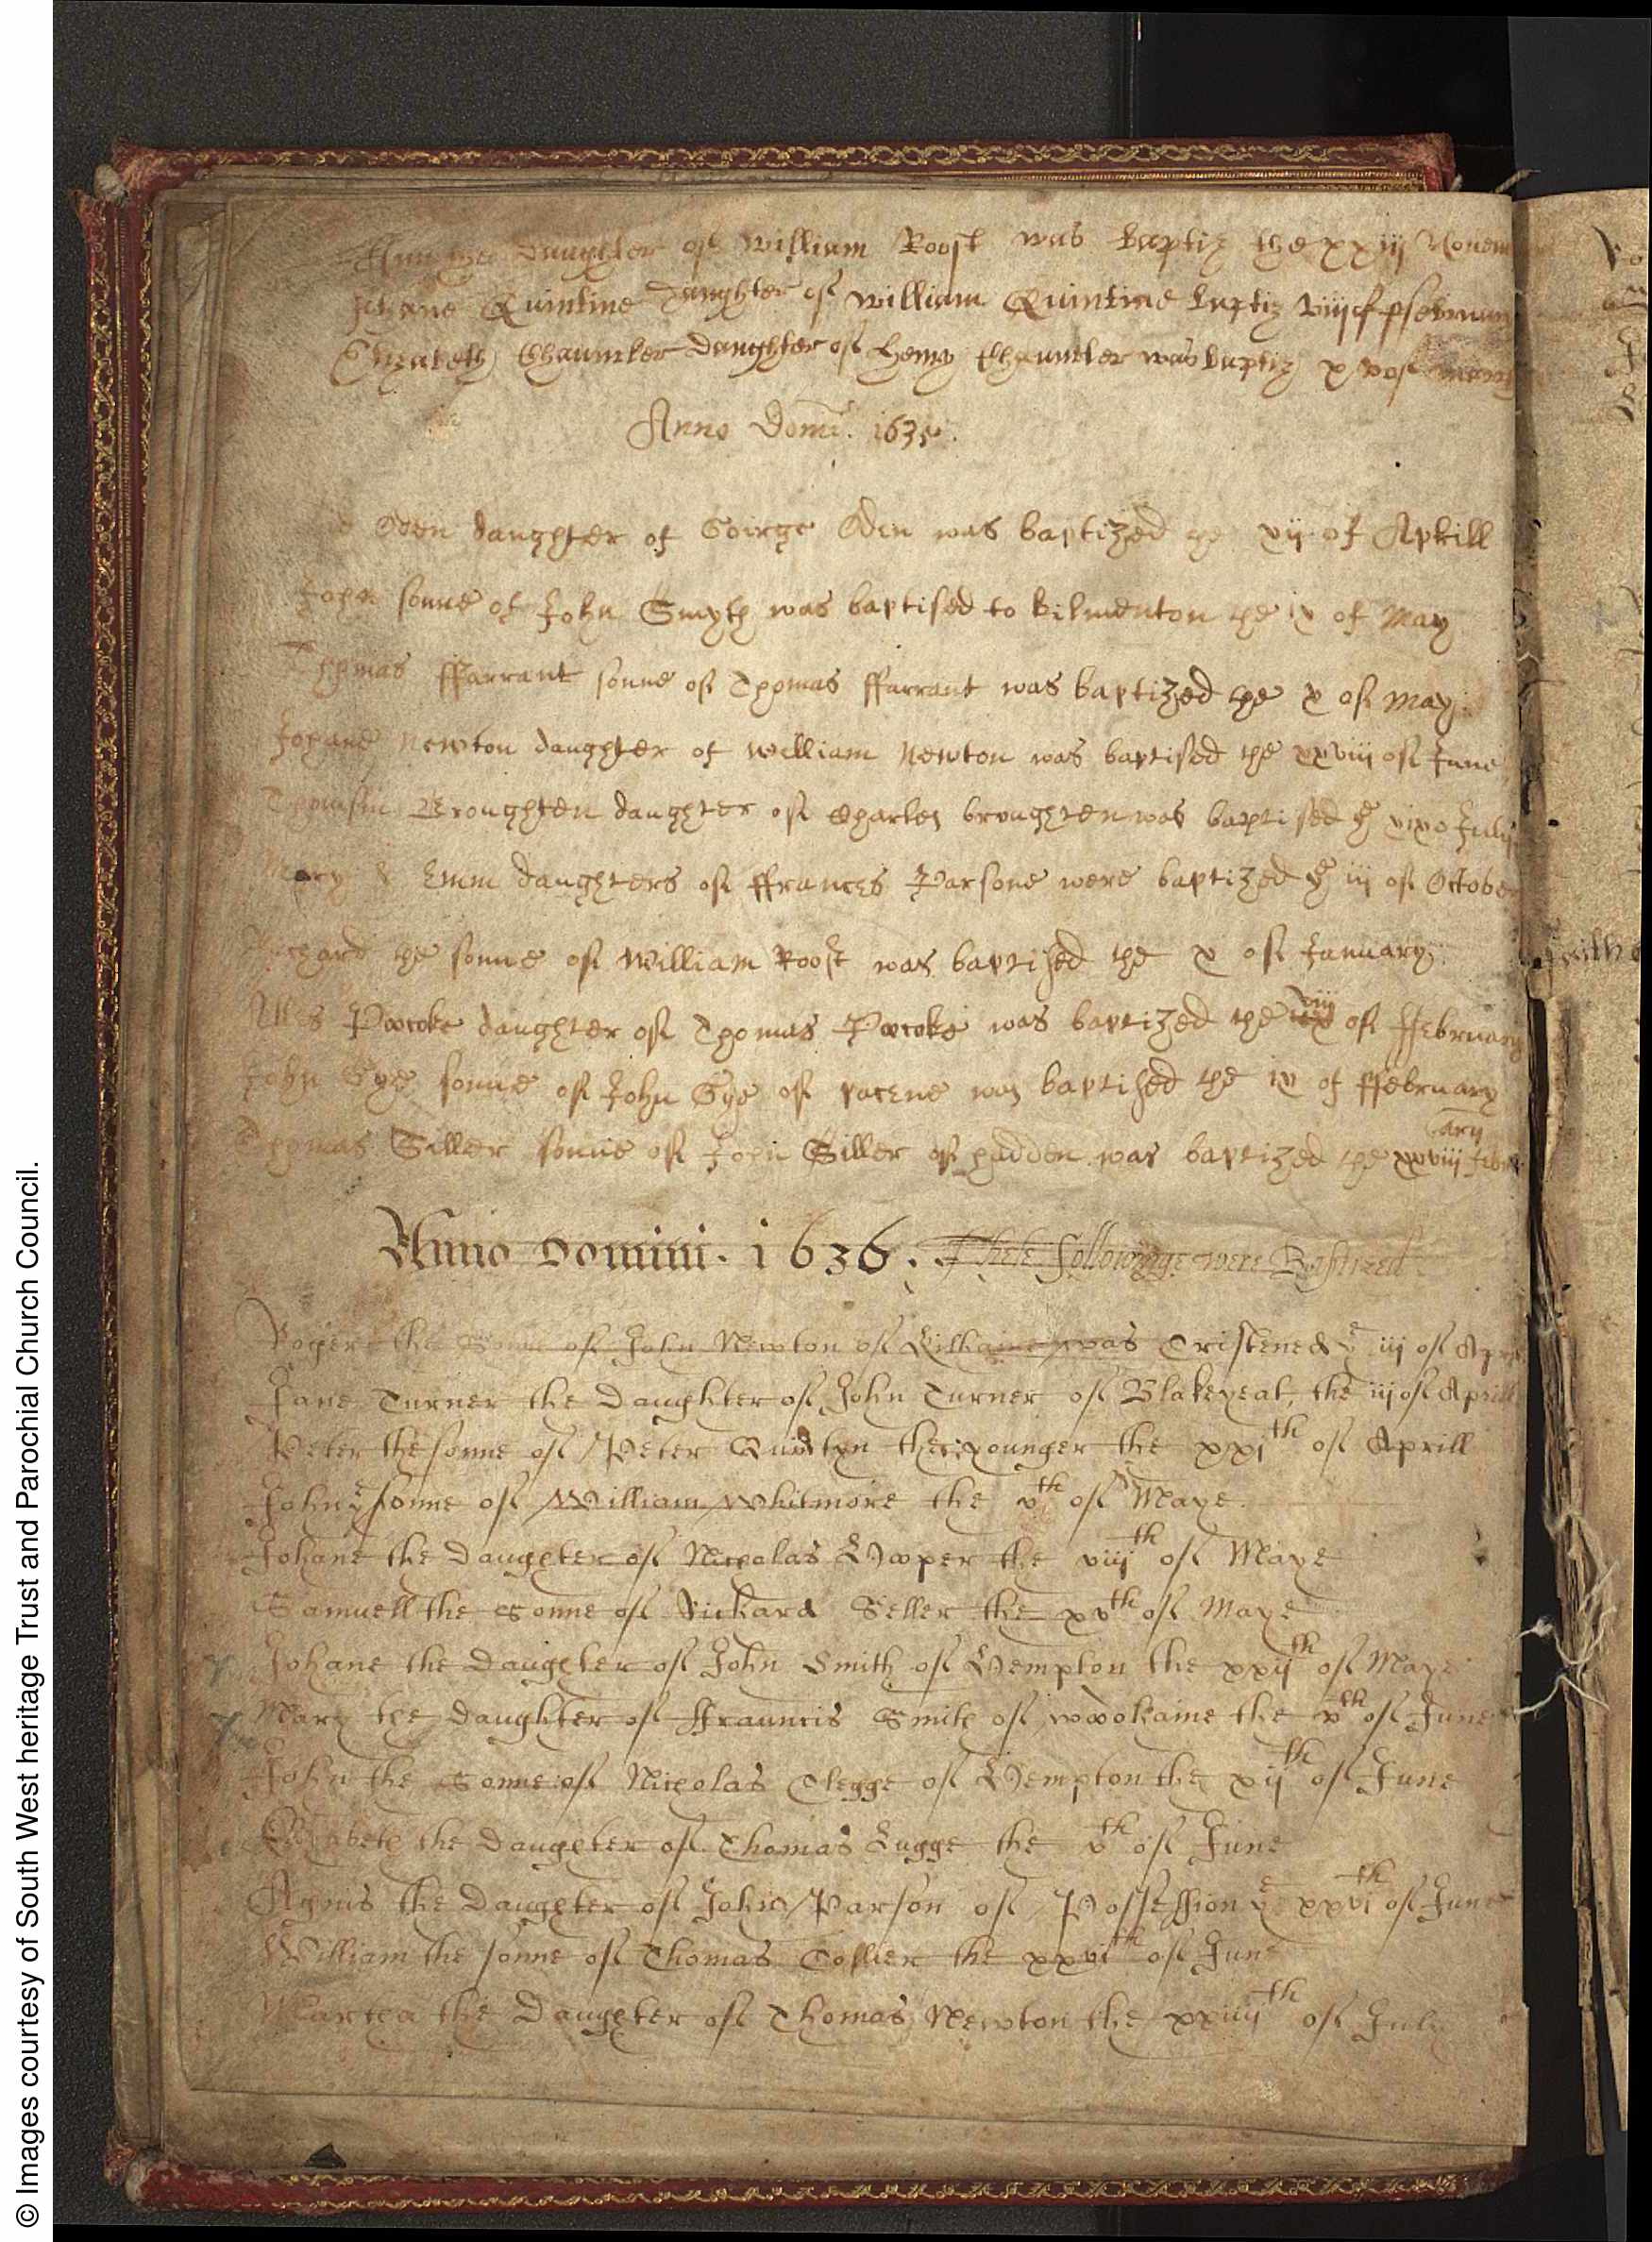 daughter of William Roost was baptiz the xxiij Novem
Johane Quintine daughter of William Quintine baptiz viij of ffebruary
Elizabeth Chauncler daughter of Henry Chauncler was baptiz xv of
Anno Domi. 1635.
Oden daughter of Goirge Oden was baptized ye vij of Aprill
John sonne of John Smyth was baptised to kilmenton the ix of May
Thomas ffarrant sonne of Thomas ffarrant was baptized the x of May
Johane Newton daughter of William Newton was baptised the xxviij of June
Broughten daughter of Charles broughten was baptised ye July
Mary & Emm daughters of ffrances Parsone were baptized ye iij of October
Richard the sonne of William Roost was baptised the x of January
Poocoke daughter of Thomas Poocoke was baptized the viij of ffebruary
John Gye sonne of John Gye of was baptised the ix of ffebruary
ary
Thomas Siller sonne of John Siller of hadden was baptized the xxviij febru
Anno Domini. 1636. These followinge were Baptized
Roger the sonne of John Newton of was Cristened ye iij of Apr
Jane Turner the Daughter of John Turner of Blakeyeat, the iij of Aprill
Peter the sonne of Peter the younger the xxjth of Aprill
John ye sonne of William Whitmore the vth of Maye.
Johane the Daughter of Nicholas Hooper the viijth of Maye
Samuell the sonne of Richard Seller the xvth of Maye
Johane the Daughter of John Smith of Hempton the xxijth of Maye
Mary the Daughter of ffrauncis Smith of the vth of June
John the sonne of Nicholas Clegge of Hempton the xijth of June
Elizabeth the Daughter of Thomas Lugge the vth of June
Agnis the Daughter of John Parson of Possession ye xxvith of June
William the sonne of Thomas Collier the xxvith of June
Martha the Daughter of Thomas Newton the xxiiijth of July
© Images courtesy of South West heritage Trust and Parochial Church Council.